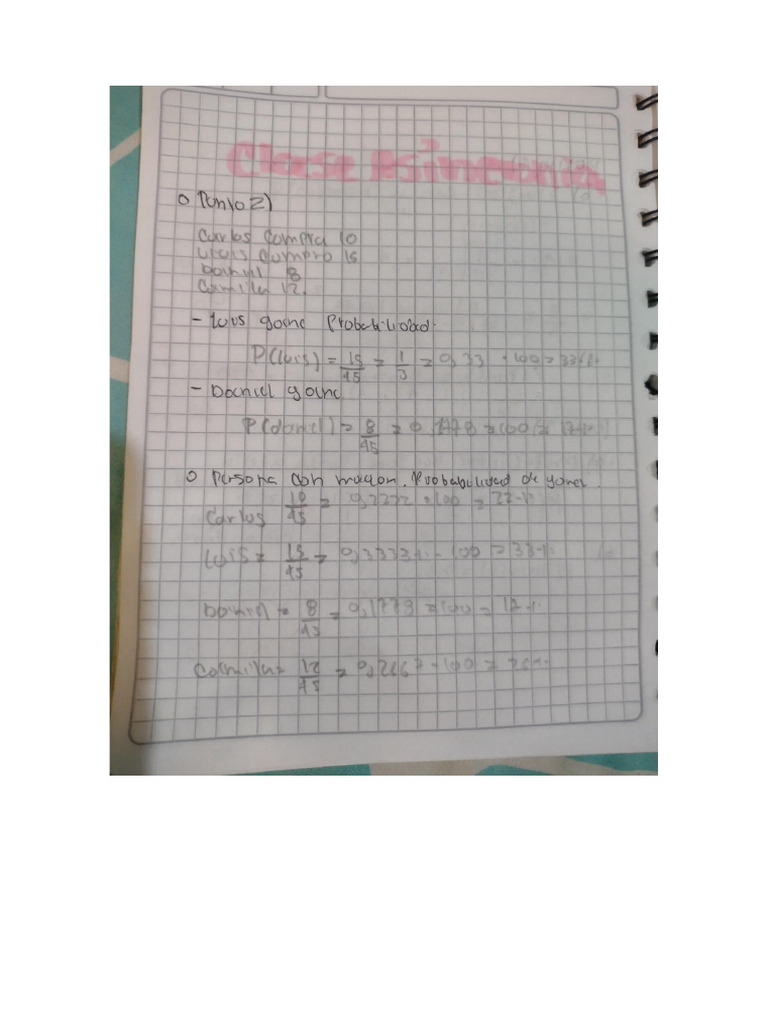 Clase Asincronia
o Punto 2)
Carlos compra 10
Luis compro 15
Daniel 8
Camila 12.
- Luis gane Probabilidad.
P(Luis) = 15/45 = 1/3 = 0,33 · 100 = 33%
- Daniel gane
P(daniel) = 8/45 = 0,1778 = 100 = 17%
o Persona con mayor. Probabilidad de ganar.
Carlos 10/45 = 0,2222 · 100 = 22%
Luis = 15/45 = 0,3333 · 100 = 33%
Daniel = 8/45 = 0,1778 = 100 = 17%
Camila = 12/45 = 0,2667 · 100 = 26%